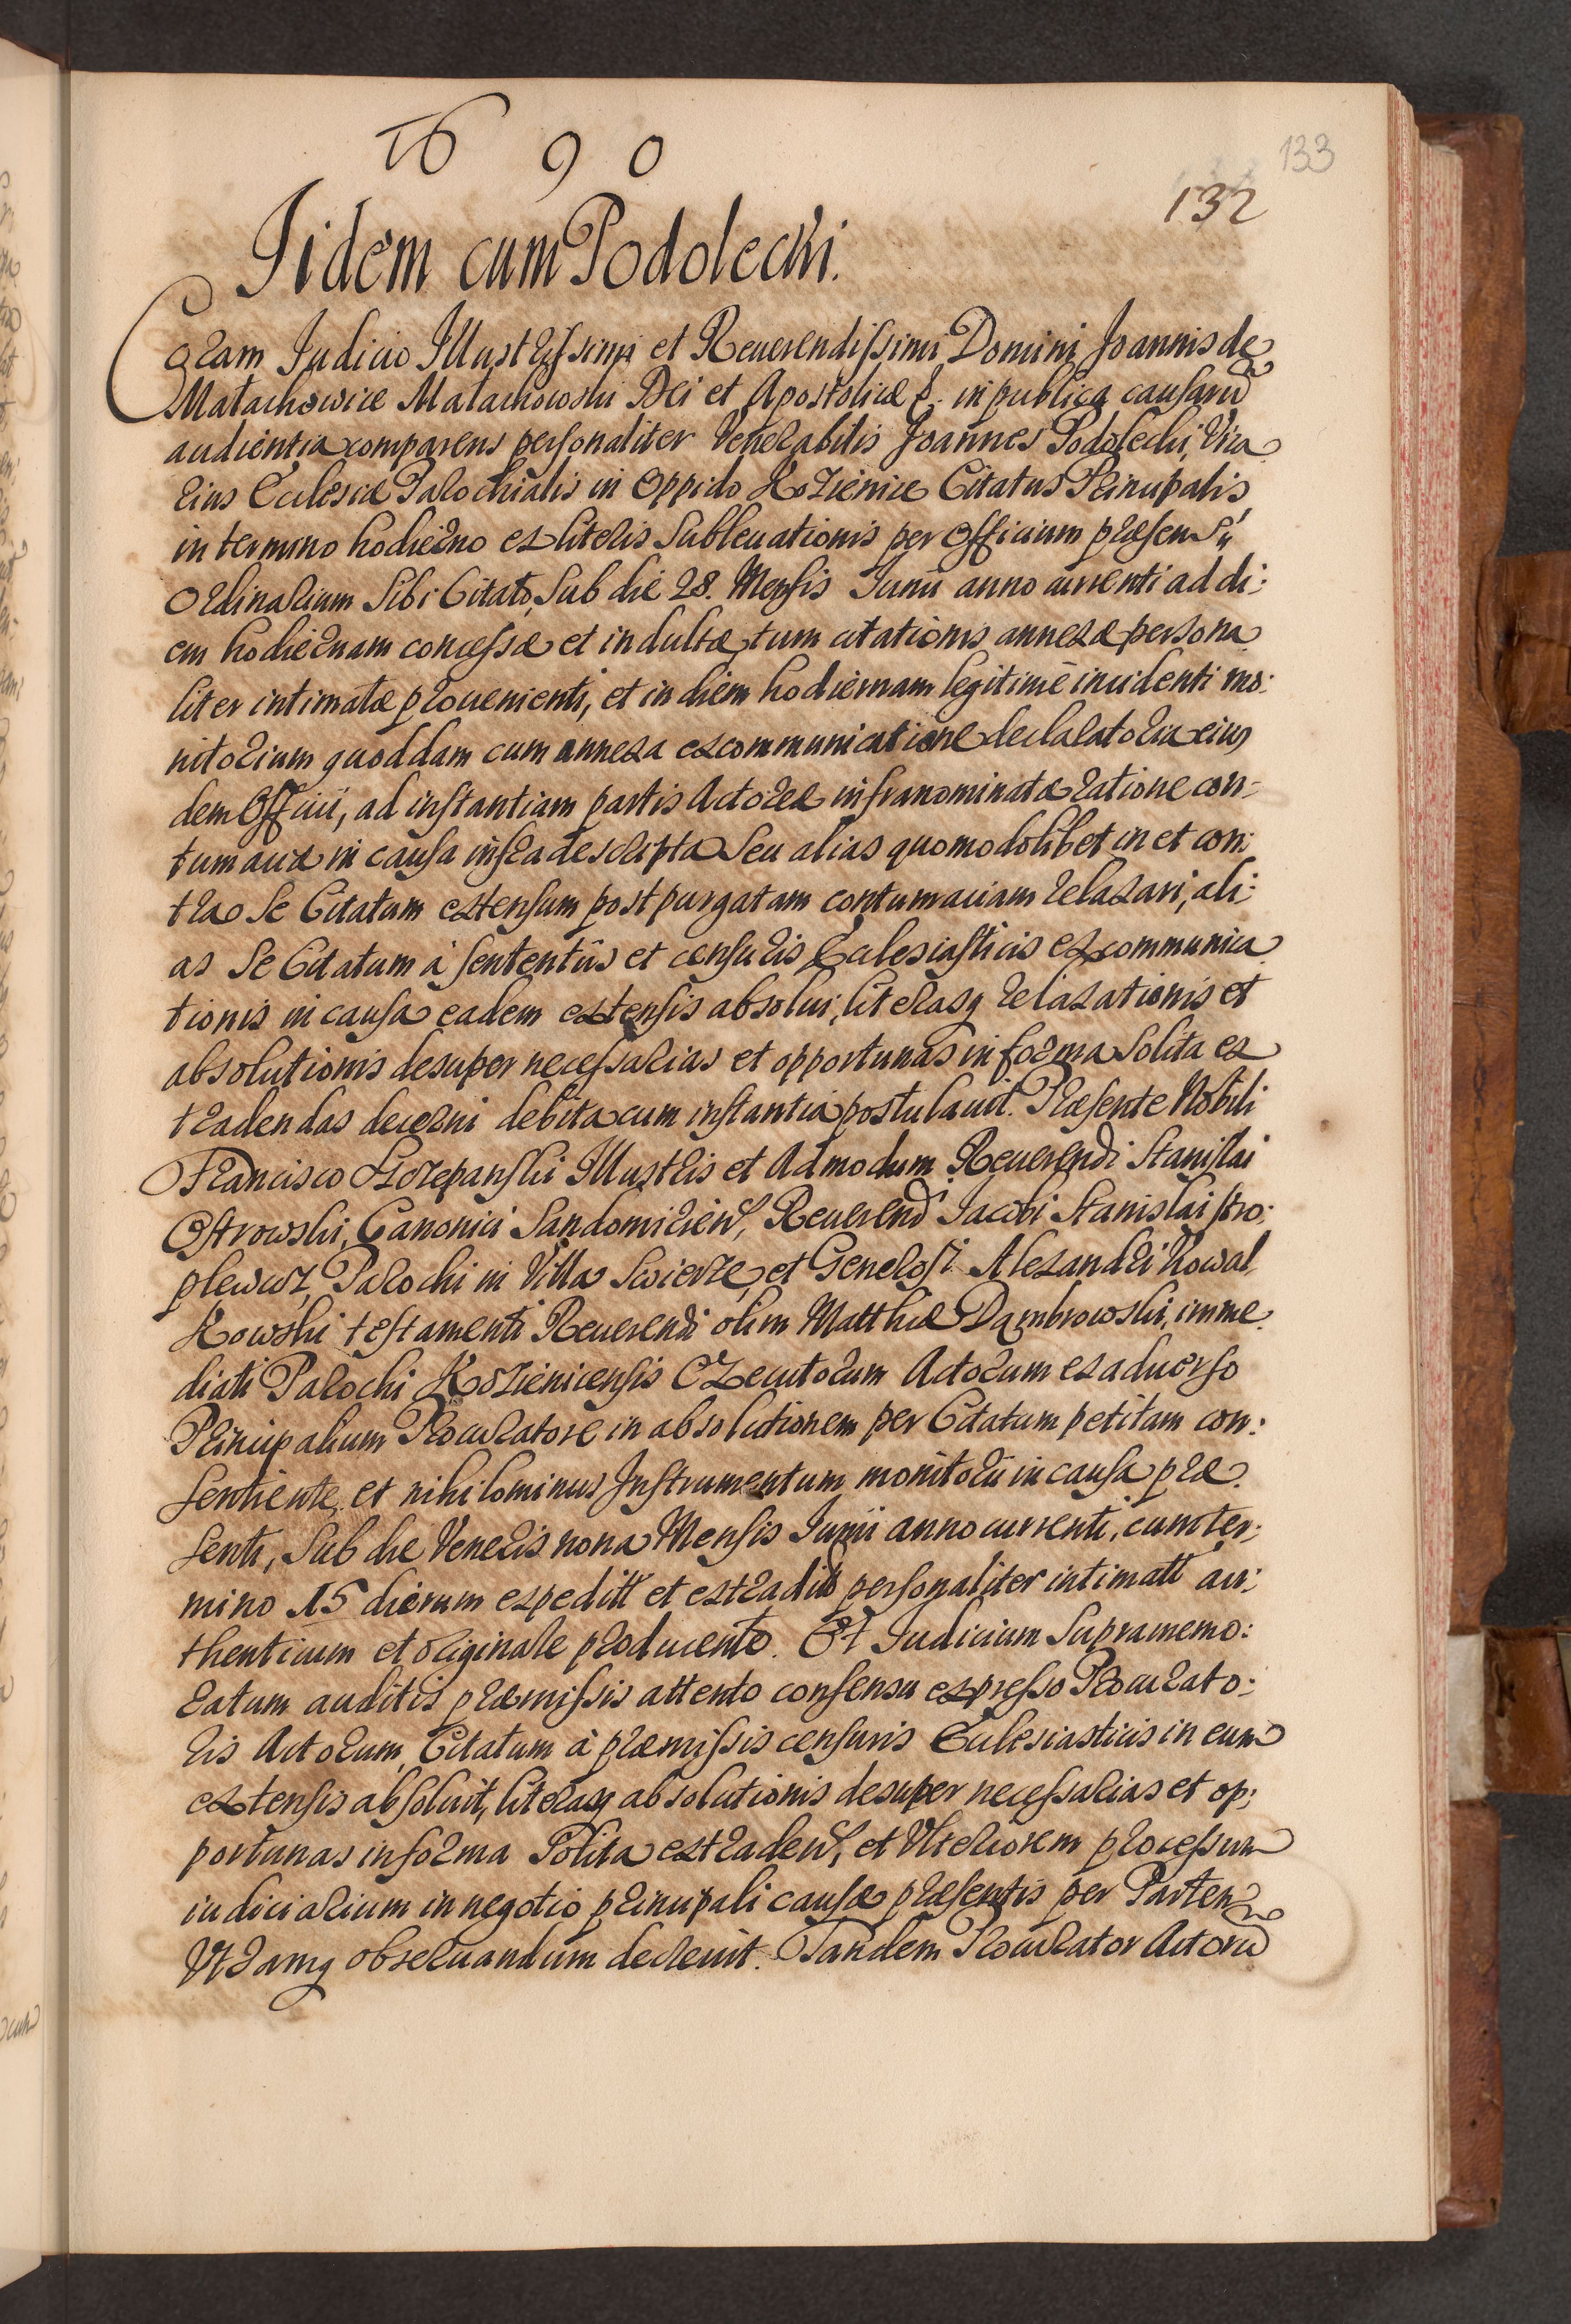 1690
133
132
Iidem cum Podolecki.
Coram Judicio Illustrissimi et Reuerendissimi Domini Joannis de
Małachowice Małachowski Dei et Apostolicæ &. in publica causarū
audientia comparens personaliter Venerabilis Joannes Podolecki, Vica
rius Ecclesiæ Parochialis in Oppido Kozienice Citatus Principalis
in termino hodierno ex literis Subleuationis per Officium præsens
Ordinarium Sibi Citato, Sub die 28. Mensis Junii anno currenti ad di:
em hodiernam concessæ et indultæ, tum citationis annexæ persona
liter intimatæ prouenienti, et in diem hodiernam legitimè incidenti mo:
nitorium quoddam cum annexa excommunicatione declaratoria eius
dem Officii, ad instantiam partis Actoreæ infranominatæ ratione con-
tumaciæ in causa infra descripta Seu alias quomodolibet in et con:
tra Se Citatum extensum post purgatam contumaciam relaxari, ali:
as Se Citatum à sententiis et censuris Ecclesiasticis excommunica
tionis in causa eadem extensis absolui, literasq relaxationis et
absolutionis desuper necessarias et opportunas in forma Solita ex
tradendas decerni debita cum instantia postulauit. Præsente Nobili
Francisco Szczepanski Illustris et Admodum Reuerendi Stanislai
Ostrowski, Canonici Sandomirien, Reuerend Jacobi Stanislai stro:
plewicz, Parochi in Villa Swierze, et Generosi Alexandri Kowal
kowski testamenti Reuerendi olim Matthiæ Dąmbrowski, imme
diati Parochi Kozienicensis Executorum Actorum ex aduerso
Principalium Procuratore in absolutionem per Citatum petitam con:
sentiente, et nihilominus Instrumentum monitorii in causa præ
senti, Sub die Veneris nona Mensis Junii anno currenti, cum ter:
mino 15 dierum expeditt et extraditt personaliter intimatt au:
thenticum et originale producente. Et Judicium Supramemo:
ratum auditis præmissis attento consensu expresso Procurato:
ris Actorum, Citatum à præmissis censuris Ecclesiasticis in eum
extensis absoluit, literasq absolutionis desuper necessarias et op:
portunas in forma Solita extraden, et Vlteriorem processum
iudiciarium in negotio principali causæ præsentis per Partem
Vtramq obseruandum decreuit. Tandem Procurator Actorū